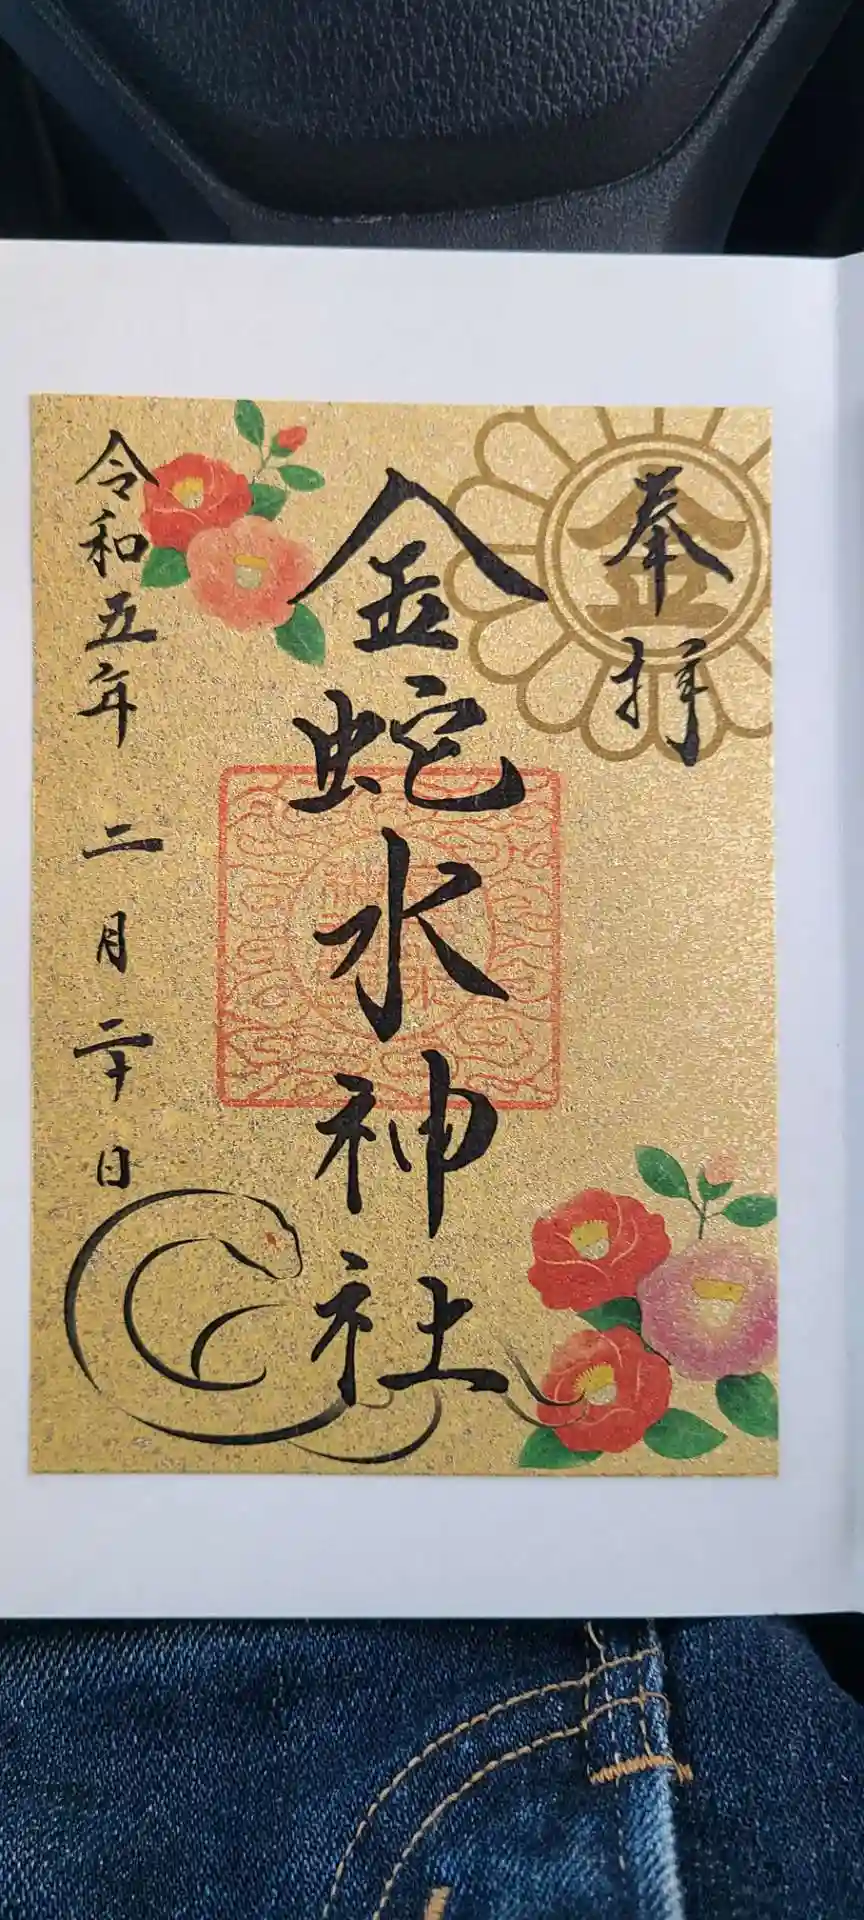 奉拝
金
金蛇水神社
令和五年 二月二十日